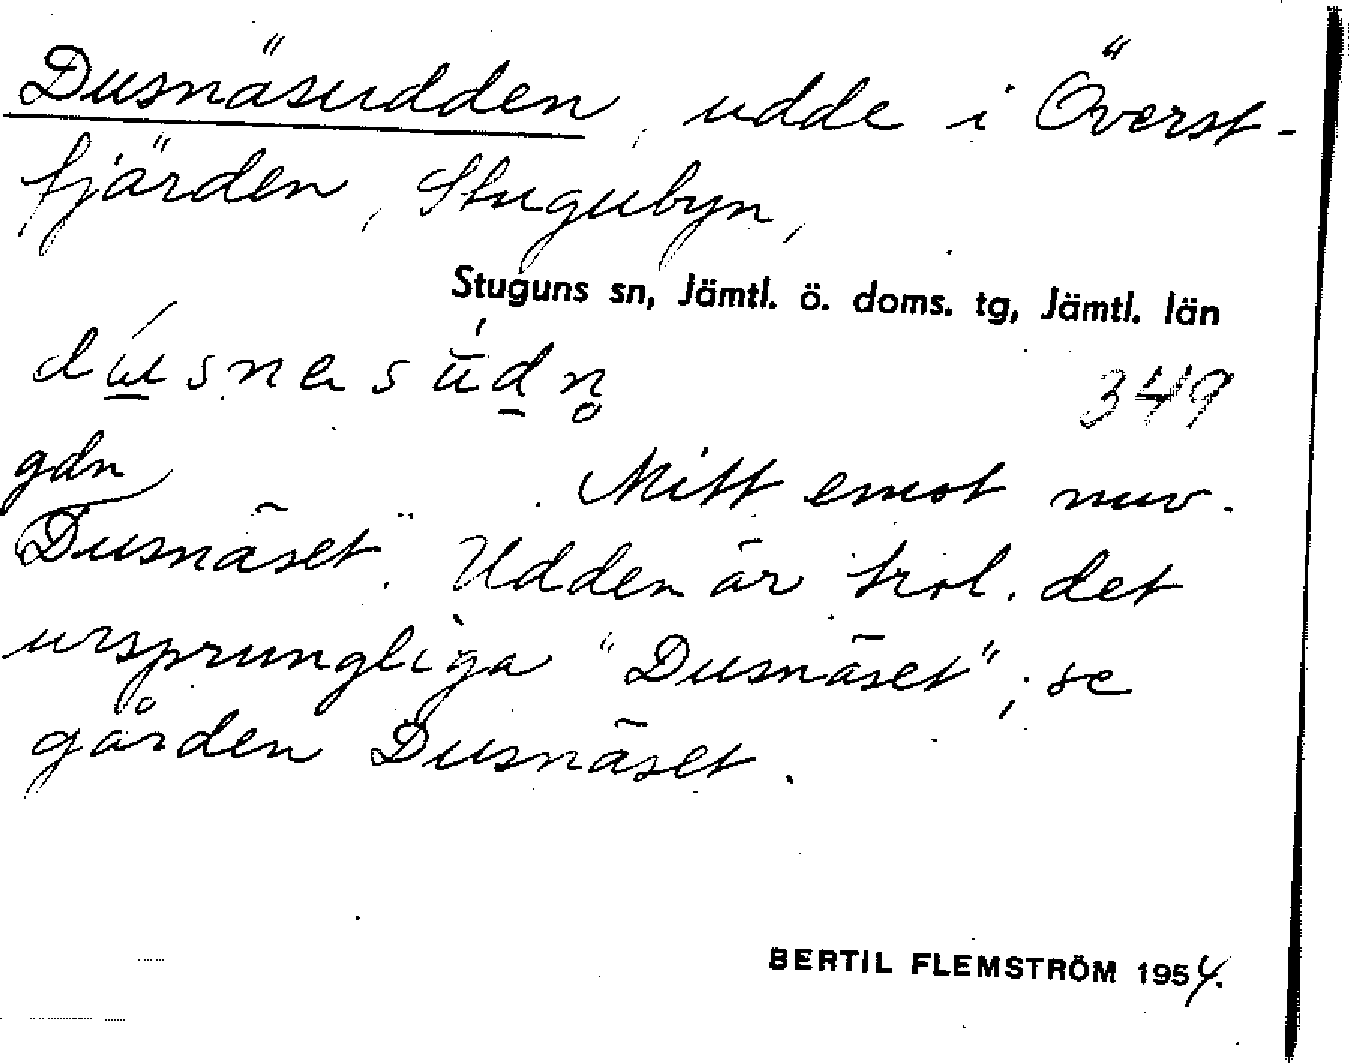 Dusnäsudden, udde i Överst-
fjärden, Stugubyn,
Stuguns sn, Jämtl. ö. doms. tg, Jämtl. län
349
gdn
Mitt emot nuv.
Dusnäset. Udden är trol. det
ursprungliga "Dusnäset"; se
gården Dusnäset.
BERTIL FLEMSTRÖM 1954.